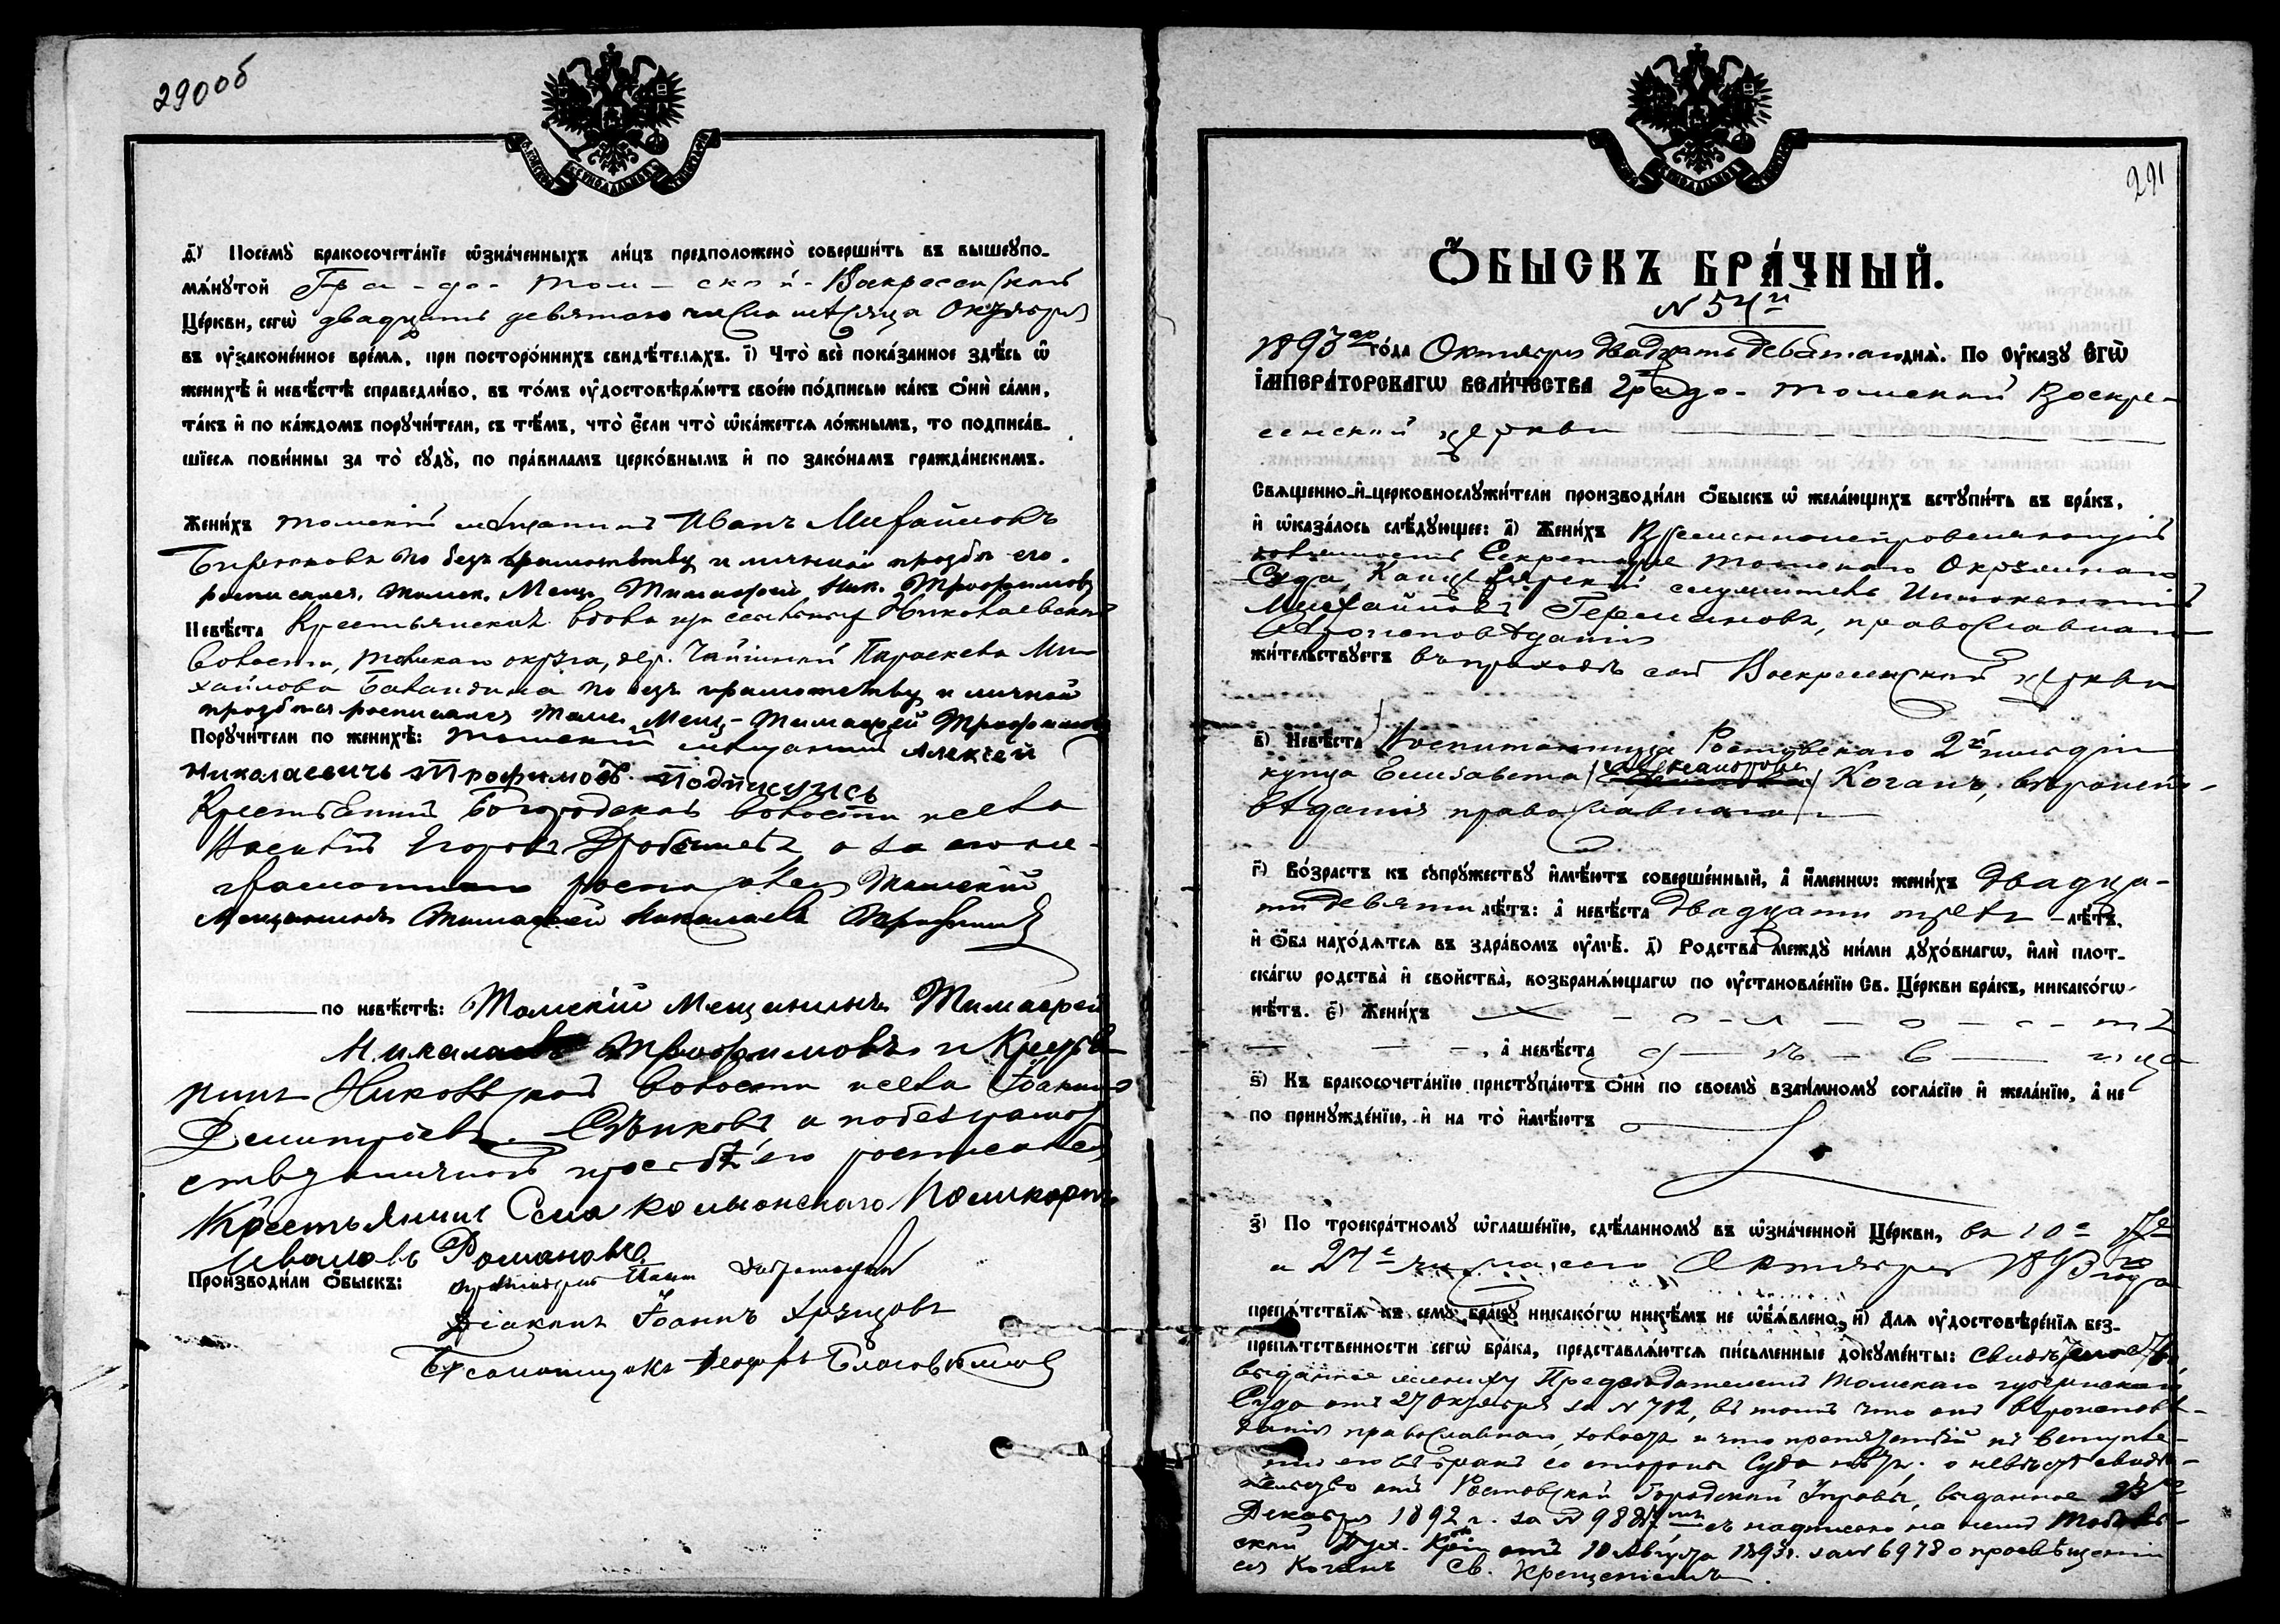 290об
д) Посемꙋ̀ бракосочета́нїе ѡ҆зна́ченныхъ ли́цъ предположено̀ соверши́ть въ вышеꙋпо-
мѧ́нꙋтой Гра-до-Том-ской-Воскресенской
Це́ркви, сегѡ̀ двадцать девятаго числа мѣсяца Октября
въ ᲂу҆законе́нное вре́мѧ, при посторо́ннихъ свидѣ́телѧхъ. і҃) Что̀ всѐ пока́занное здѣ́сь ѡ҆
женихѣ̀ и҆ невѣ́стѣ справедли́во, въ то́мъ ᲂу҆достовѣрѧ́ютъ свое́ю по́дписью ка́къ ѻ҆нѝ са́ми,
та́къ и҆ по ка́ждомъ порꙋчи́тели, съ тѣ́мъ, что̀ є҆́сли что̀ ѡ҆ка́жетсѧ ло́жнымъ, то подписа́в-
шїесѧ пови́нны за то̀ сꙋдꙋ̀, по пра́виламъ церко́внымъ и҆ по зако́намъ гражда́нскимъ.
Жени́хъ Томскій мѣщанинъ Иванъ Михайловъ
по безграмотству и личной прозбы его
росписался. Томск. Мещ. Тимофей Ник. Трофимовъ
Невѣ́ста Крестьянская вдова изъ ссыльныхъ Николаевской
волости, Томскаго округа, дер. Параскева Ми-
хайлова по безграмотству и личной
прозбы росписался Томс. Мещ-Тимофей Трофимовъ
Порꙋчи́тели по женихѣ̀: Томскій мѣщанинъ Алексей
Николаевичъ Трофимовъ Подписуюсь
Крестьянинъ Богородской волости села
Василій Егоровъ а за его не-
грамотного росписался Томскій
Мещанинъ Тимофей Николаевъ Трофимовъ
по невѣ́стѣ: Томскій Мещанинъ Тимофей
Николаевъ Трофимовъ и Крестья-
нинъ волости села
Димитріевъ а по безграмот-
ству и личной просьбѣ его росписался
Крестьянинъ Села
Ивановъ Романовъ
Производи́ли ѻ҆́быскъ:
Діаконъ Іоаннъ
Псаломщикъ Ѳеодоръ
291
Ѻ҆́БЫСКЪ БРА́ЧНЫЙ.
N 54й
1893го го́да Октября двадцать девятаго дня̀. По ᲂу҆ка́зꙋ є҆гѡ̀
і҆мпера́торскагѡ вели́чества Градо-Томской Воскре-
сенской церкви
Свѧще́нно-и҆-церковнослꙋжи́тели производи́ли ѻ҆́быскъ ѡ҆ жела́ющихъ встꙋпи́ть въ бра́къ,
и҆ ѡ҆каза́лось слѣ́дꙋющее: а҃) Жени́хъ
Секретаря Томскаго Окружнаго
Суда, Канцелярскій служитель Иннокентій
Михайловъ Германовъ, православнаго
вѣроисповѣданія
жи́тельствꙋетъ въ приходѣ сей Воскресенской церкви
в҃) Невѣ́ста Воспитанница Ростовскаго 2й гильдіи
купца Елизавета Александрова Коганъ, вѣроиспо-
вѣданія православнаго
г҃) Во́зрастъ къ сꙋпрꙋ́жествꙋ и҆мѣ́ютъ соверше́нный, а҆ и҆́меннѡ: жени́хъ двадца-
ти девяти лѣ́тъ: а҆ невѣ́ста двадцати трехъ лѣ́тъ,
и҆ ѻ҆́ба нахо́дѧтсѧ въ здра́вомъ ᲂу҆мѣ̀. д҃) Родства̀ междꙋ̀ ни́ми дꙋхо́внагѡ, и҆лѝ плот-
ска́гѡ родства̀ и҆ сво́йства, возбранѧ́ющагѡ по ᲂу҆становле́нїю Св. Це́ркви бра́къ, никако́гѡ
нѣ́тъ. є҃) Жени́хъ х-о-л-о-с-тъ
, а҆ невѣ́ста д-ѣ-в-ица
ѕ҃) Къ бракосочета́нїю пристꙋпа́ютъ ѻ҆нѝ по своемꙋ̀ взаи́мномꙋ согла́сїю и҆ жела́нїю, а҆ не
по принꙋжде́нїю, и҆ на то̀ и҆мѣ́ютъ
з҃) По троекра́тномꙋ ѡ҆глаше́нїю, сдѣ́ланномꙋ въ ѡ҆зна́ченной Це́ркви, въ 10е 17е
и 24е числа сего Октября 1893го года
препѧ́тствїѧ къ семꙋ̀ бра́кꙋ никако́гѡ никѣ́мъ не ѡ҆б̾ѧ́влено, и҃) Длѧ ᲂу҆достовѣре́нїѧ без-
препѧ́тственности сегѡ̀ бра́ка, представлѧ́ютсѧ пи́сьменные докꙋме́нты: свидѣтельство,
выданное жениху Предсѣдателемъ Томскаго губернскаго
Суда отъ 27 октября за N 712, въ томъ что онъ вѣроисповѣ-
данія православнаго, холостъ и что препятствій къ вступле-
нію его въ бракъ со стороны Суда нѣтъ; о невѣстѣ свидѣ-
тельство отъ Ростовской Городской Управы, выданное 23го
Декабря 1892 г. за N съ надписью на немъ Тоболь-
ской Дух. Кон. отъ 10 Августа 1893 г. за N 6978 о просвѣщеніи
ея Коганъ Св. Крещеніемъ.